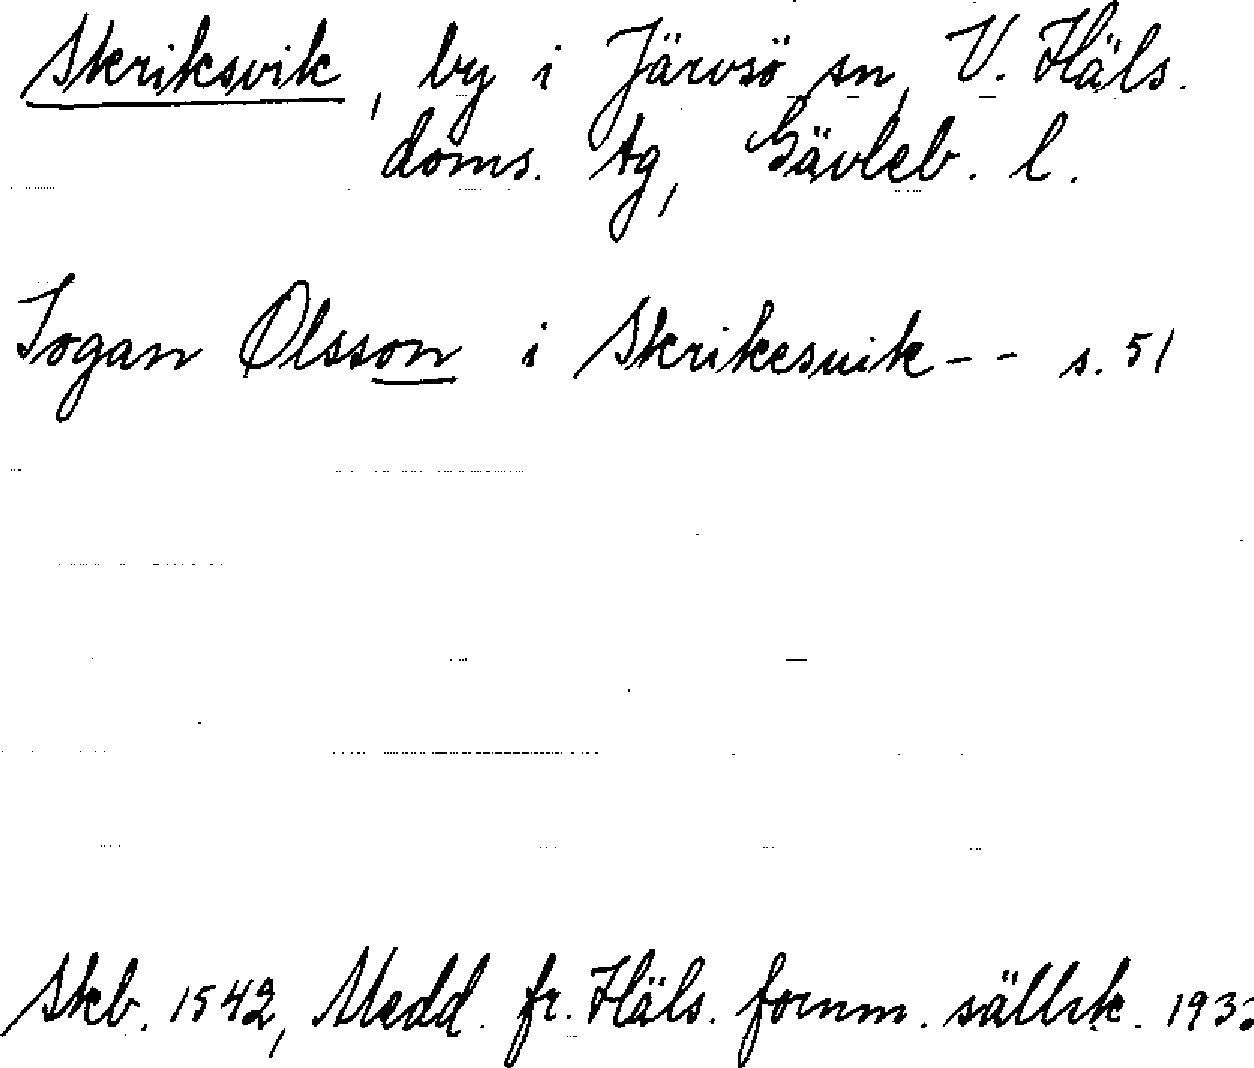 Skriksvik, by i Järvsö sn, V. Häls.
doms. tg, Gävleb. l.
Iogan Olsson i Skrikesuik - - s. 51
Skb. 1542, Medd. fr. Häls. fornm. sällsk.